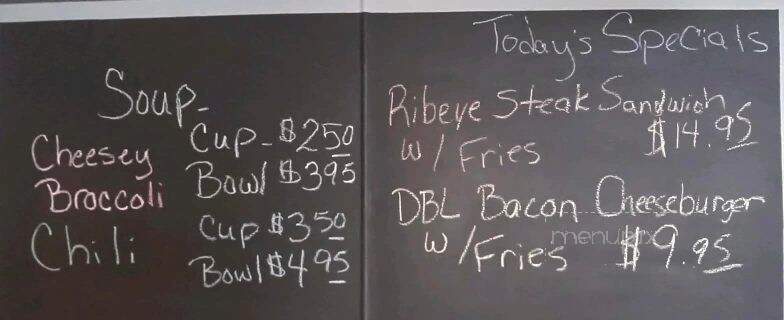 Soup-
Cheesey
Broccoli
Cup - $2 50
Bowl $3 95
Chili
Cup $3 50
Bowl $4 95
Today's Specials
Ribeye Steak Sandwich
w/ Fries $14.95
DBL Bacon Cheeseburger
w/Fries $9.95
menupix